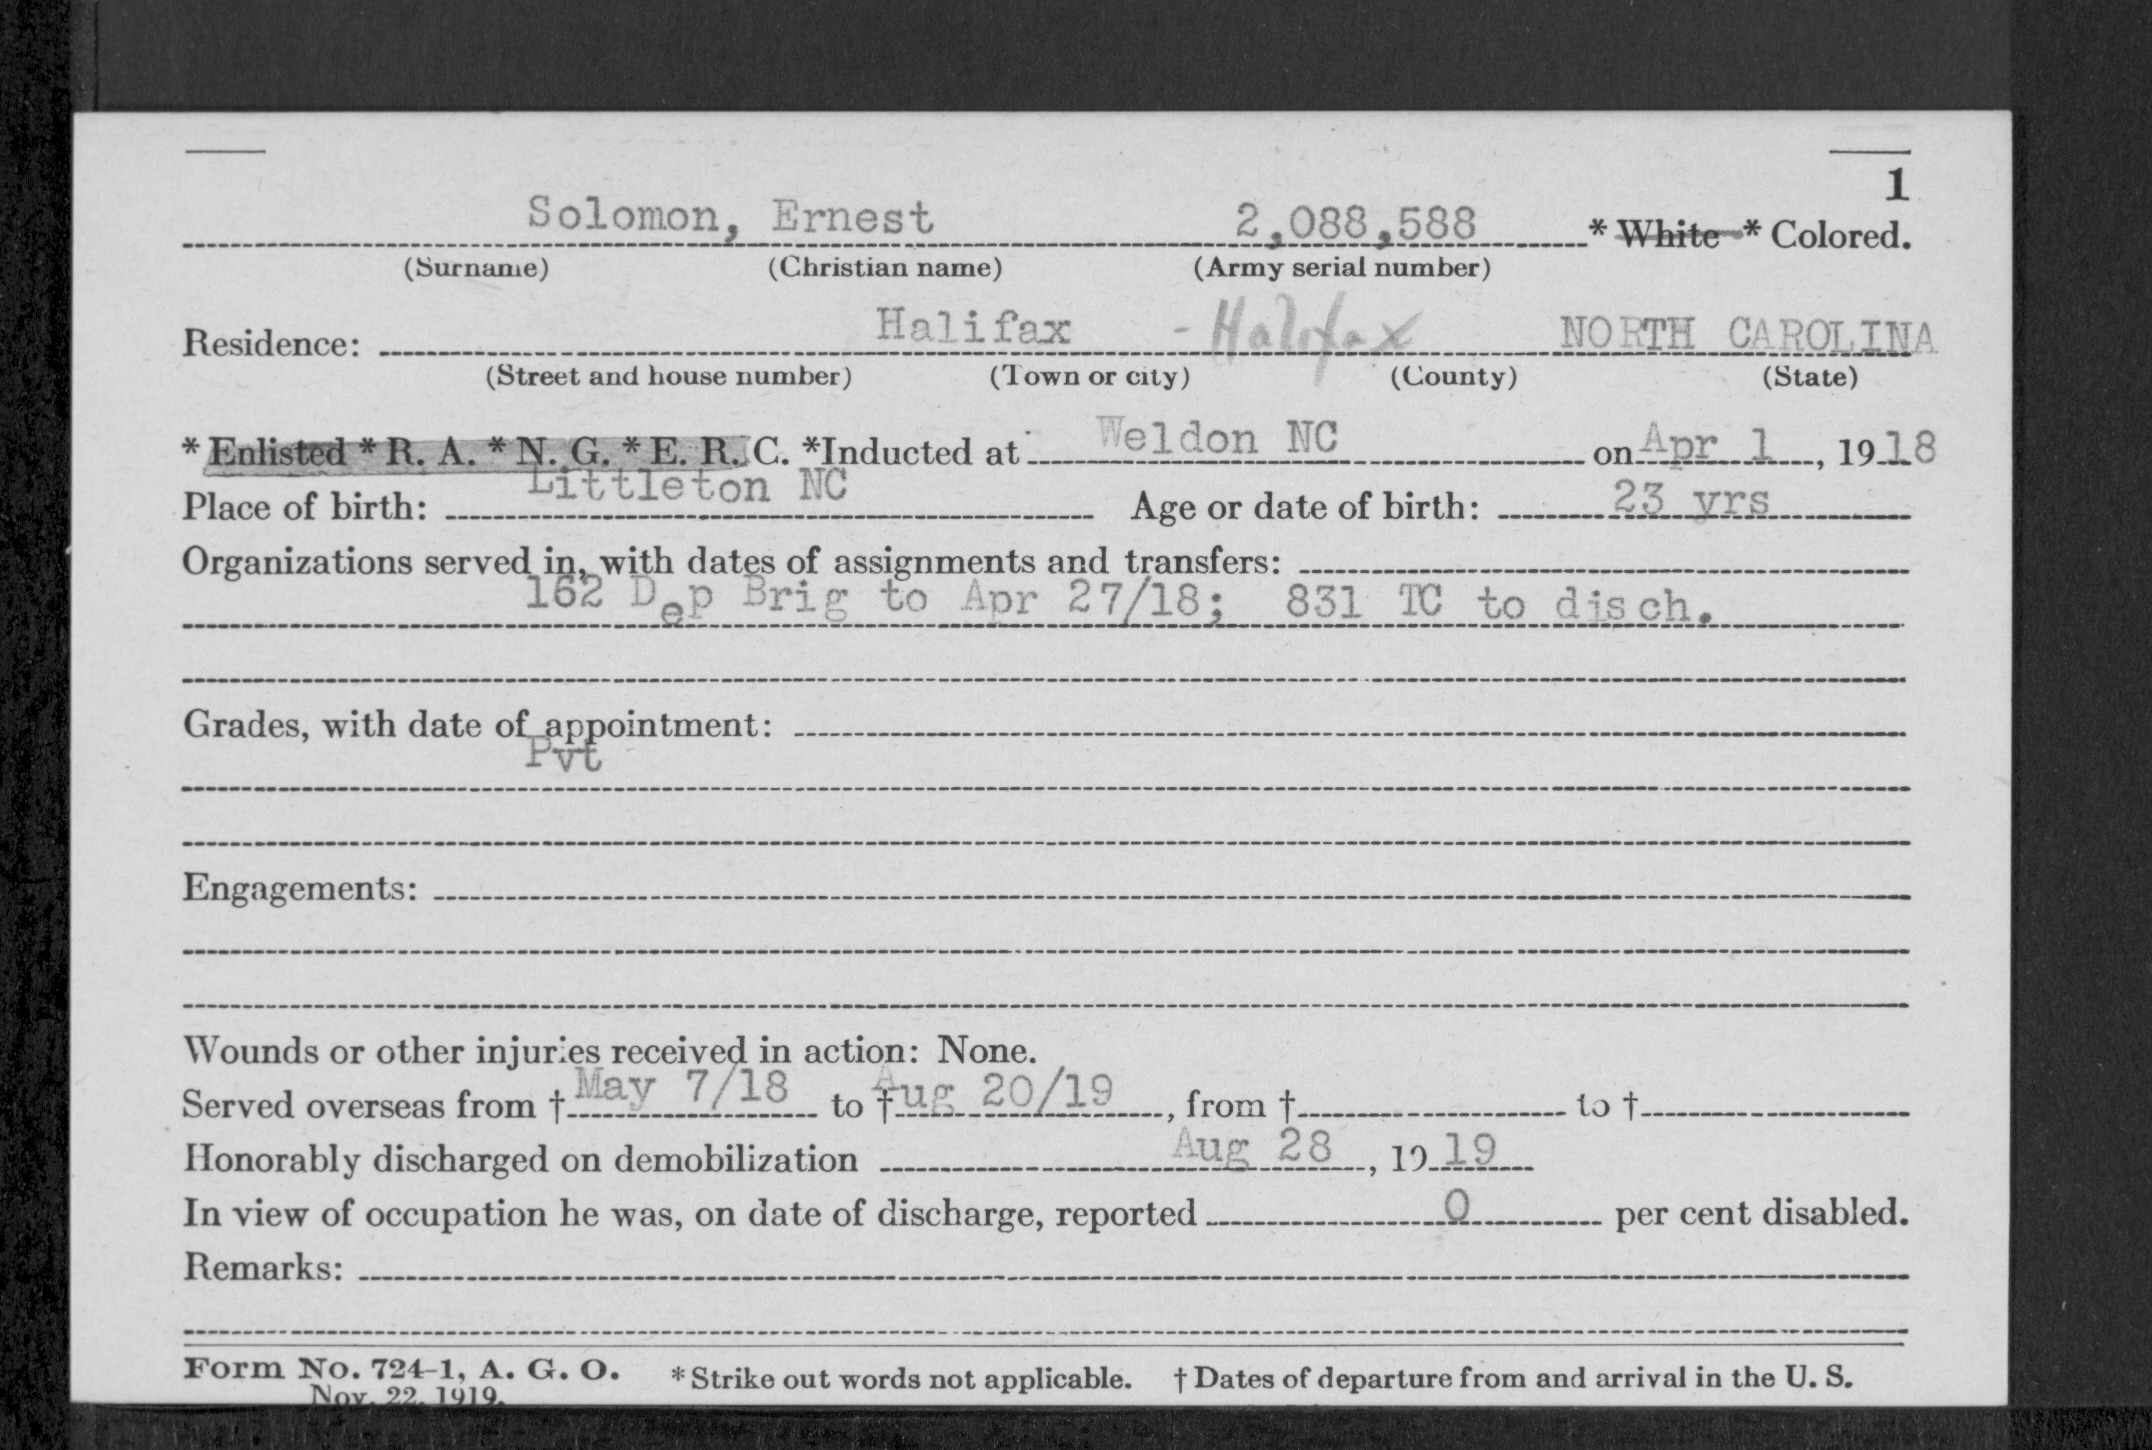 1
Solomon, Ernest 2,088,588 * White * Colored.
(Surname) (Christian name) (Army serial number)
Residence: Halifax - Halifax NORTH CAROLINA
(Street and house number) (Town or city) (County) (State)
* Enlisted * R. A. * N. G. * E. R. C. *Inducted at Weldon NC on Apr 1, 1918
Place of birth: Littleton NC Age or date of birth: 23 yrs
Organizations served in, with dates of assignments and transfers:
162 Dep Brig to Apr 27/18; 831 TC to disch.
Grades, with date of appointment:
Pvt
Engagements:
Wounds or other injuries received in action: None.
Served overseas from † May 7/18 to † Aug 20/19, from † to †
Honorably discharged on demobilization Aug 28, 19 19
In view of occupation he was, on date of discharge, reported 0 per cent disabled.
Remarks:
Form No. 724-1, A. G. O. * Strike out words not applicable. † Dates of departure from and arrival in the U. S.
Nov. 22, 1919.